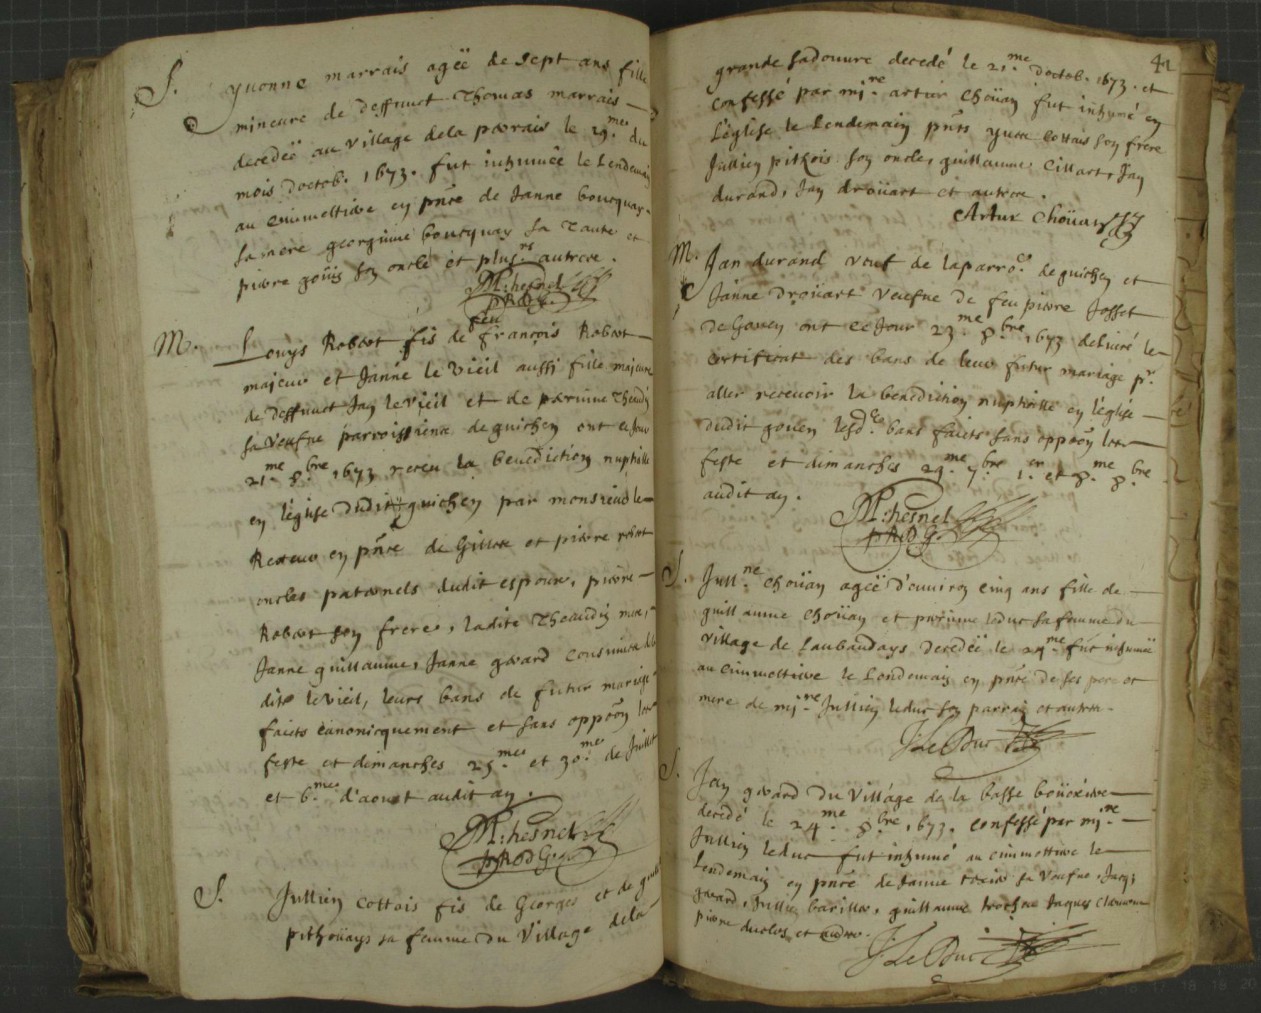 S.
yvonne marrais agëe de sept ans fille
mineure de deffunct Thomas marrais
decedeë au village dela parrais le 19.mes du
mois doctob. 1673. fut inhumée le Lendemain
au cimmettire en pnce de Janne boucquay
sa mere georginne boucquay sa Tante et
pierre goüis son oncle et plusrs autres.
M: hesnel
pRdG.
M.
feu
Louys Robert fis de françois Robert
majeur et Janne le vieil aussi fille majeure
de deffunct Jan le vieil et de perrinne Theaudi
sa veufve parroissiens de guichen ont ce jour
21.me 8.bre 1673 receu la benediction nuptialle
en l'églize dudit guichen par monsieur le
Recteur en pnce de Gilles et pierre robert
oncles paternels dudit espoux, pierre
Robert son frere, ladite Theaudin mere,
Janne guillaume, Janne gerard
dite le vieil, leurs bans de futur mariage
faicts canonicquement et sans oppoon lors
feste et dimanches 25.mes et 30.mes de Juillet
et 6.mes d'aoust audit an.
M: hesnel
pRdG.
S.
Jullien cottais fis de Georges et de
pithoüays sa femme du village dela
41
grande sadouure decedé le 21.me doctob. 1673. et
confessé par mi.re artur choüan fut inhumé en
l'église le Lendemain pnts yues cottais son frere
Jullien pithois son oncle, guillaume Cillart, Jan
durand, Jan droüart et autres.
Artur Choüan
M.
Jan durand veuf de laparroe. de guichen et
Janne droüart veufve de feu pierre Josset
de Goven ont ce Jour 23.me 8.bre 1673 deliuré le
certificat des bans de leur futur mariage pr.
aller recevoir la benediction nuptialle en l'église
dudit goven lesd. bans faicts sans oppoon lors
feste et dimanches 29.me 7.bre 1.er et 8.me 8.bre
audit an.
M: hesnel
pRdG.
S.
Jull.ne choüan ageë d'environ cinq ans fille de
guillaume choüan et perrinne leduc sa femme du
village de Laubaudays decedeë le 24.me fut inhumeë
au cimmettire le Lendemain en pnce de ses pere et
mere de mi.re Jullien leduc son parrain et autres.
J Le Duc
S.
Jan gerard du village de la basse boüexiere
decedé le 24.me 8.bre 1673. confessé par mi.re
Jullien leduc fut inhumé au cimmettire le
Lendemain en pnce de Janne sa veufve, Jacq;
gerard, Jullien barillet, guillaume Jaques
pierre duclos et autres.
J Le Duc